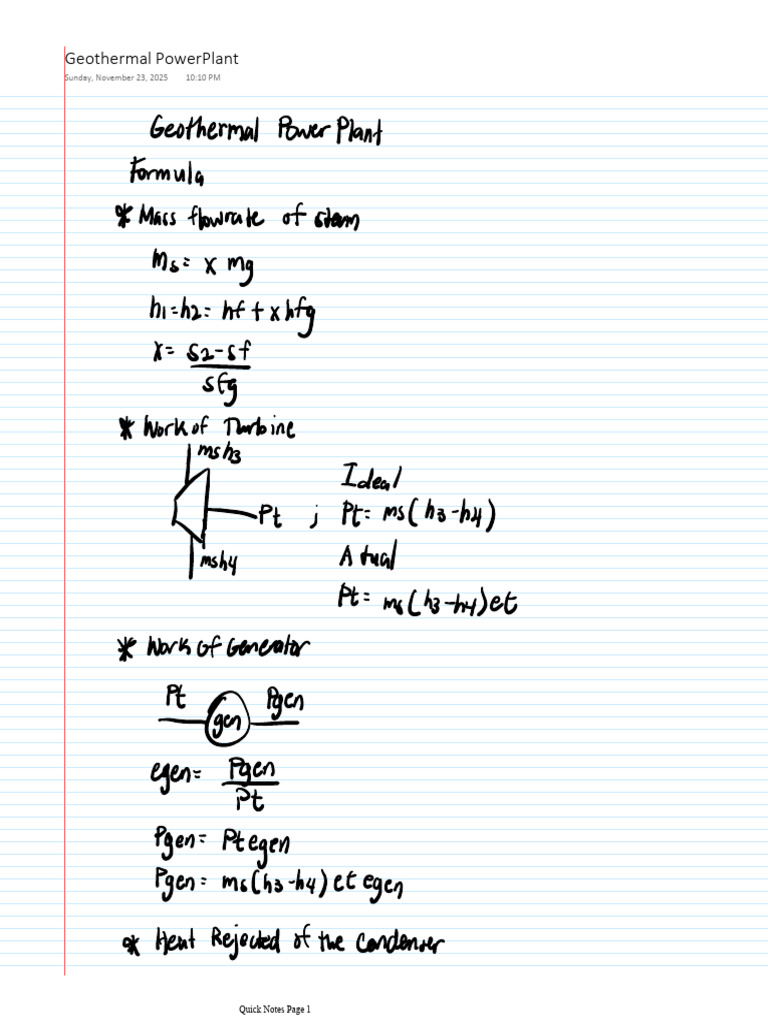 Geothermal PowerPlant
Sunday, November 23, 2025 10:10 PM
Geothermal Power Plant
Formula
* Mass flowrate of steam
ms = x mg
h1 = h2 = hf + x hfg
x = s2 - sf
sfg
* Work of Turbine
ms h3
Ideal
Pt ; Pt = ms ( h3 - h4 )
Atual
ms h4
Pt = ms ( h3 - h4 ) et
* Work of Generator
Pt Pgen
gen
egen = Pgen
Pt
Pgen = Pt egen
Pgen = ms ( h3 - h4 ) et egen
* Heat Rejected of the Condenser
Quick Notes Page 1